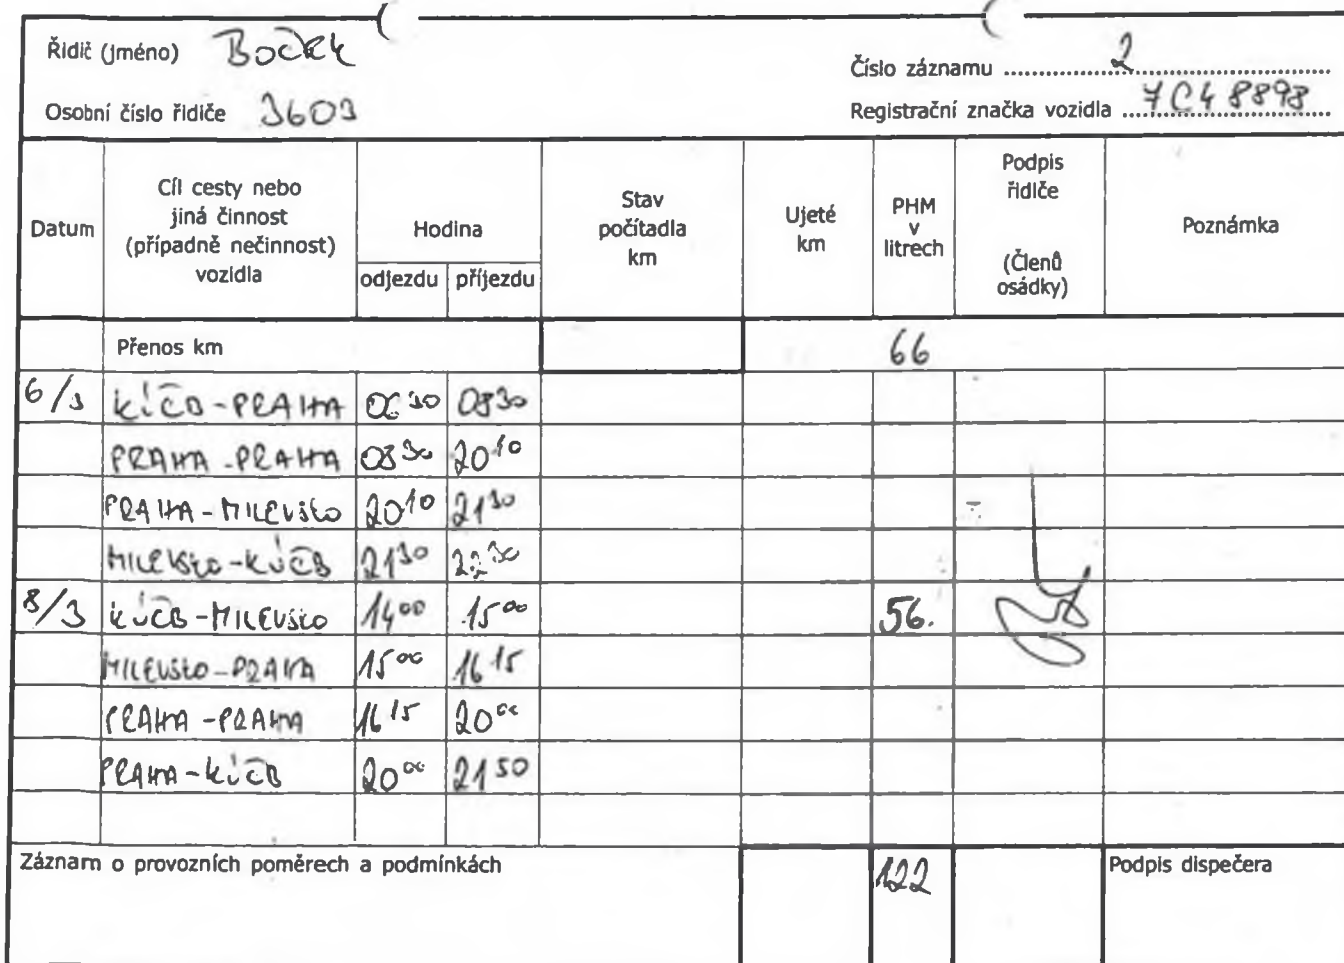 Řidič (jméno) Boček
Číslo záznamu 2
Osobní číslo řidiče 3603
Registrační značka vozidla 7C4 8898
Datum
Cíl cesty nebo
jiná činnost
(případně nečinnost)
vozidla
Hodina
odjezdu příjezdu
Stav
počítadla
km
Ujeté
km
PHM
v
litrech
Podpis
řidiče
(Členů
osádky)
Poznámka
Přenos km 66
6/3 KÚČB-PRAHA 06 30 08 30
PRAHA-PRAHA 08 30 20 10
PRAHA-MILEVSKO 20 10 21 30
MILEVSKO-KÚČB 21 30 22 30
8/3 KÚČB-MILEVSKO 14 00 15 00 56.
MILEVSKO-PRAHA 15 00 16 15
PRAHA-PRAHA 16 15 20 00
PRAHA-KÚČB 20 00 21 50
Záznam o provozních poměrech a podmínkách 122 Podpis dispečera